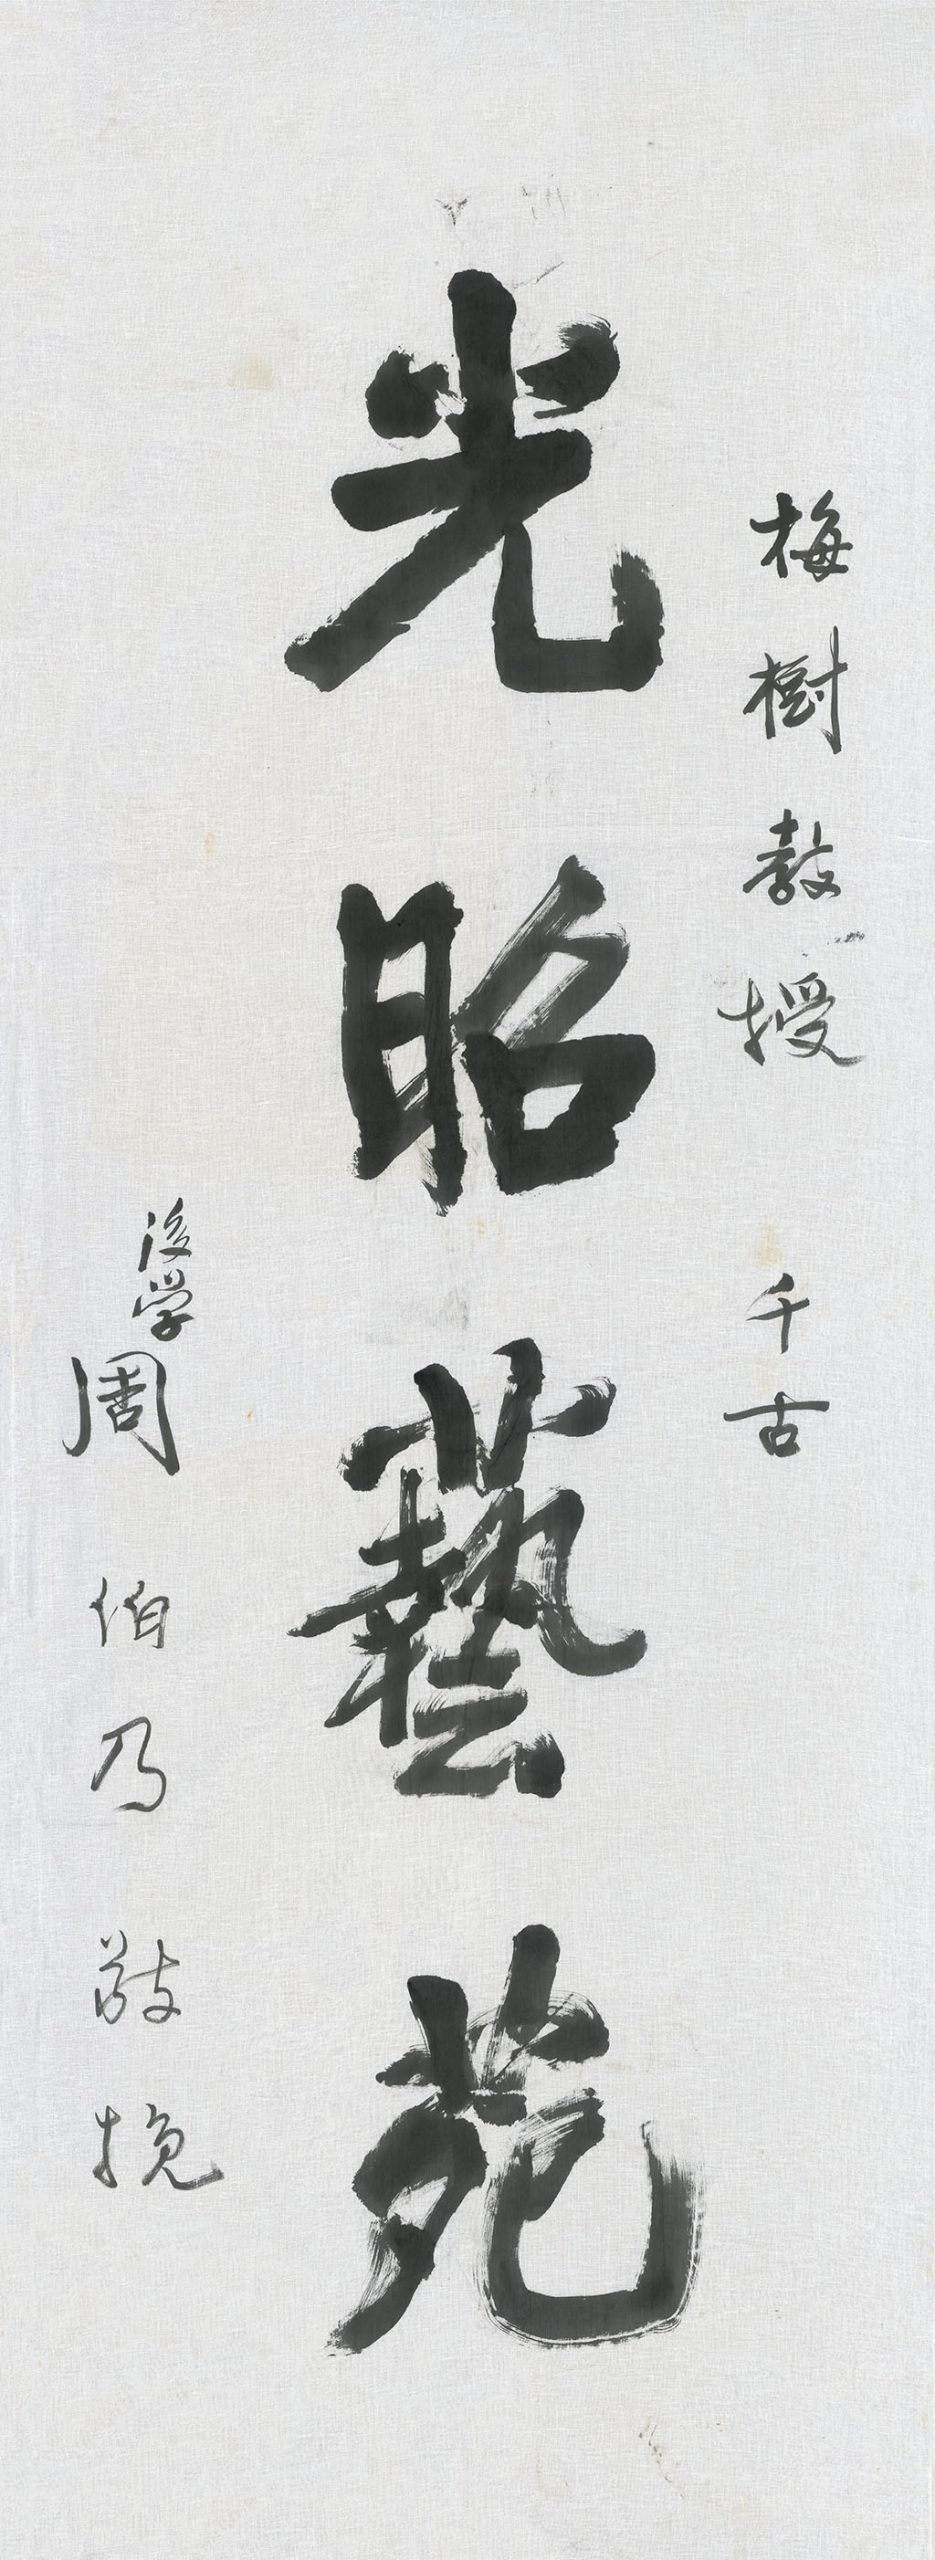 梅樹教授 千古
光昭藝苑
後学周伯乃 敬挽